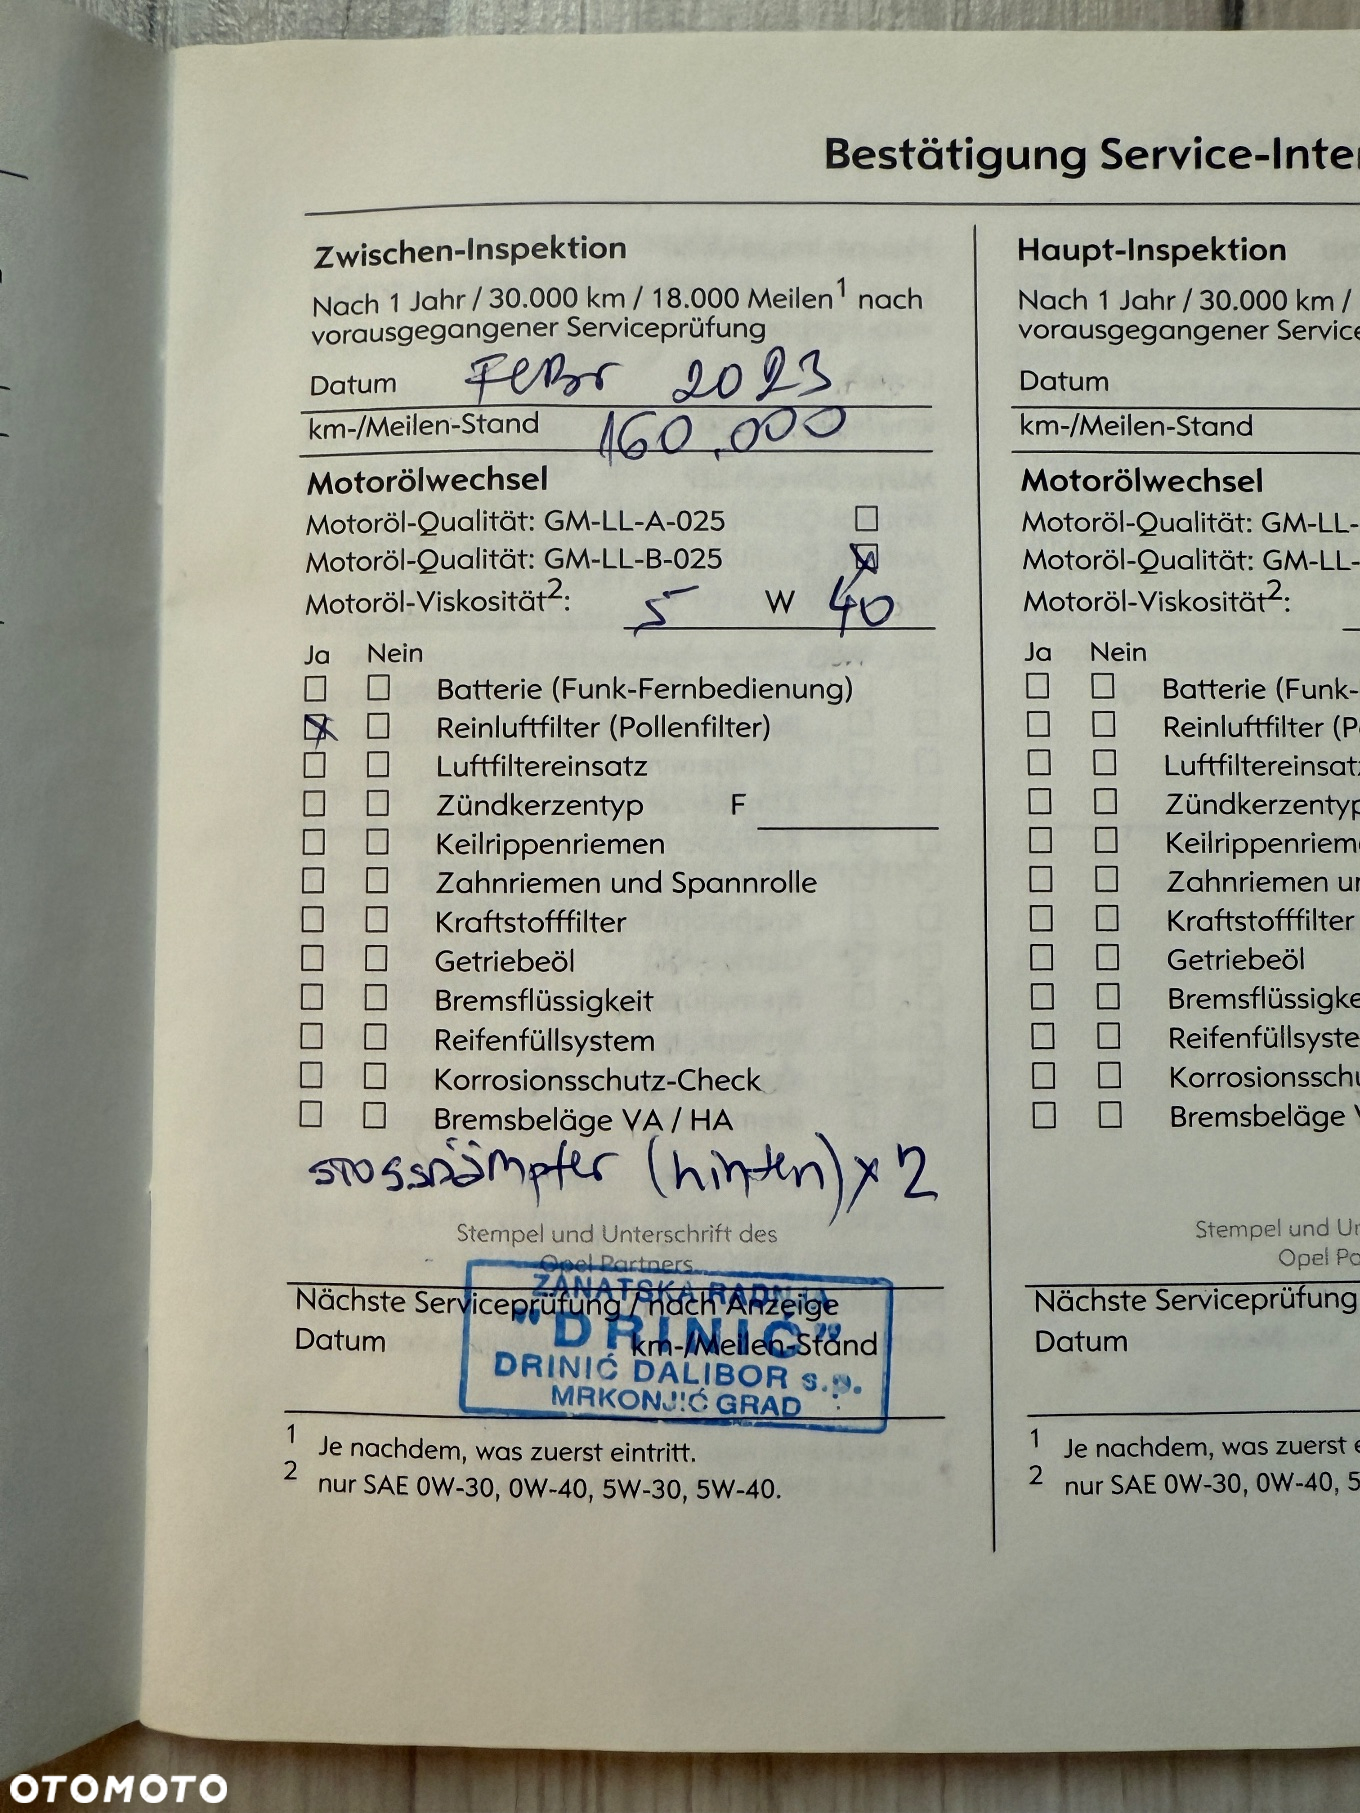 Bestätigung Service-Inter
Zwischen-Inspektion
Nach 1 Jahr / 30.000 km / 18.000 Meilen¹ nach
vorausgegangener Serviceprüfung
Datum FEBr 2023
km-/Meilen-Stand 160.000
Motorölwechsel
Motoröl-Qualität: GM-LL-A-025
Motoröl-Qualität: GM-LL-B-025
Motoröl-Viskosität²: 5 W 40
Ja Nein
Batterie (Funk-Fernbedienung)
Reinluftfilter (Pollenfilter)
Luftfiltereinsatz
Zündkerzentyp F
Keilrippenriemen
Zahnriemen und Spannrolle
Kraftstofffilter
Getriebeöl
Bremsflüssigkeit
Reifenfüllsystem
Korrosionsschutz-Check
Bremsbeläge VA / HA
stossdämpfer (hinten) x 2
Stempel und Unterschrift des
Opel Partners
Nächste Serviceprüfung / nach Anzeige
Datum km-/Meilen-Stand
ZANATSKA RADNJA
"DRINIĆ"
DRINIĆ DALIBOR s.p.
MRKONJIĆ GRAD
1 Je nachdem, was zuerst eintritt.
2 nur SAE 0W-30, 0W-40, 5W-30, 5W-40.
Haupt-Inspektion
Nach 1 Jahr / 30.000 km /
vorausgegangener Service
Datum
km-/Meilen-Stand
Motorölwechsel
Motoröl-Qualität: GM-LL-
Motoröl-Qualität: GM-LL-
Motoröl-Viskosität²:
Ja Nein
Batterie (Funk-
Reinluftfilter (P
Luftfiltereinsatz
Zündkerzentyp
Keilrippenriem
Zahnriemen un
Kraftstofffilter
Getriebeöl
Bremsflüssigke
Reifenfüllsyste
Korrosionsschu
Bremsbeläge V
Stempel und Un
Opel Pa
Nächste Serviceprüfung
Datum
1 Je nachdem, was zuerst e
2 nur SAE 0W-30, 0W-40, 5
OTOMOTO